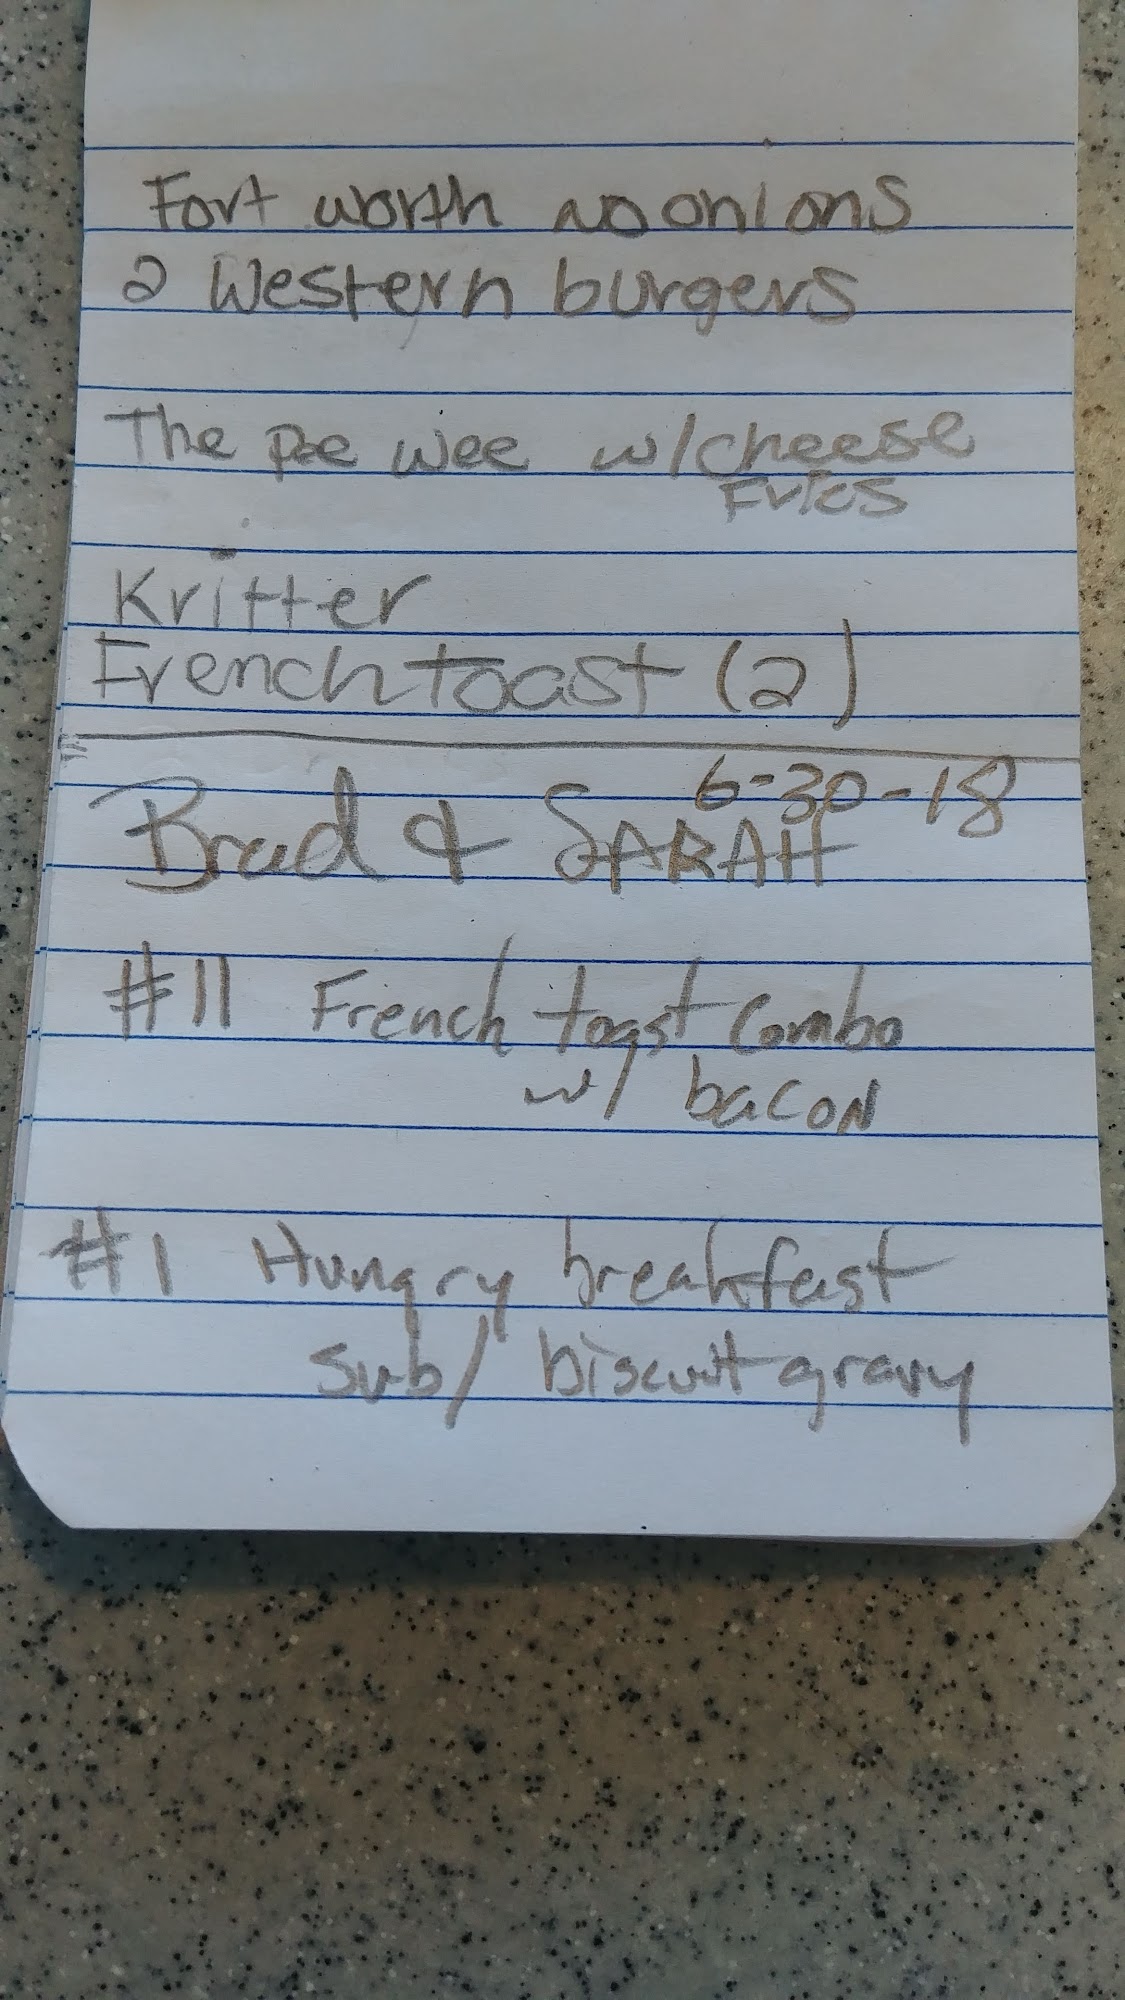 Fort worth no onions
2 Western burgers
The pee wee w/cheese
Fries
Kritter
French toast (2)
6-30-18
Brad & SARAH
#11 French toast Combo
w/ bacon
#1 Hungry breakfast
sub/ biscuit gravy